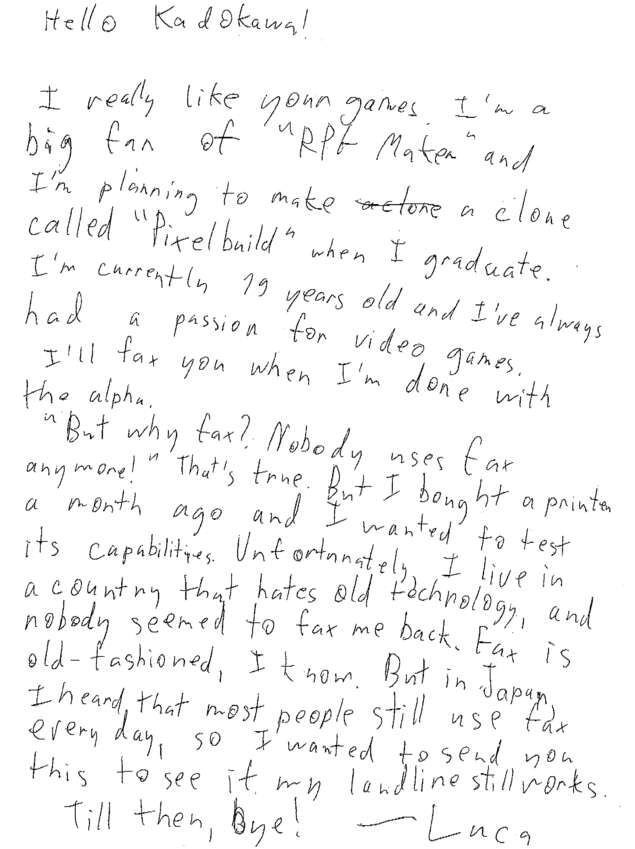 Hello Kadokawa!
I really like your games. I'm a
big fan of "RPG Maker" and
I'm planning to make a clone a clone
called "Pixelbuild" when I graduate.
I'm currently 19 years old and I've always
had a passion for video games.
I'll fax you when I'm done with
the alpha.
"But why fax? Nobody uses fax
anymore!" That's true. But I bought a printer
a month ago and I wanted to test
its capabilities. Unfortunately, I live in
a country that hates old technology, and
nobody seemed to fax me back. Fax is
old-fashioned, I know. But in Japan,
I heard that most people still use fax
every day, so I wanted to send you
this to see if my landline still works.
Till then, bye! — Luca